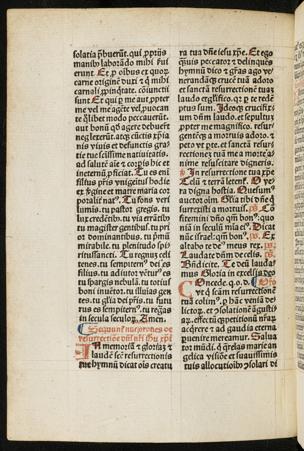 solatia phuerūt. qui pptiis
manib laborādo mihi fui
erunt. Et p oībus ex quor
carne originē duxi & q mihi
carnali ppinqtate cōiuncti
sunt. Et qui p me aut ppter
me vel me agēte vel, puocan
te qlibet modo peccauerūt.
aut bonū qd agere debuerūt
neglexerūt. atq cūctis xpia
nis viuis et defunctis gra
tie tue
ad salutē aīe et corpis hic et
ineternū pficiat. Tu es eni
filius pris vnigeitus hodie
ex vgine et matre maria cor
poralit natus. Tu fons veri
luminis. tu pastor gregis. tu
lux credētiū. tu via errātiū
tu magister gentiū. tu pri
or dominantibus. tu sumū
mirabile. tu plenitudo spi
ritussancti. Tu regnū celi
tenes. tu sempiternus dei es
filius. tu adiutor vētus es
tu spargis nebulā. tu totius
boni inuētor. tu illuminas gen
tes. tu glia dei pris. tu futu
rus es sempiternus. tu regnas
in secula seculorum. Amen.
Sequunt nunc orones de
resurrectiōe dni nri ihu xpi
In memoriā & gloriā &
laudē scē resurrectionis
tue hymnū dicat ois creatu
ra tua dne iesu xpe. Et ego
quamuis peccator & delinquēs
hymnū dico & gras ago ve
nerandāq crucē tuā adoro
et sanctā resurrectionē tuā
laudo et glifico. qz p te rede
ptus sum. Ideoqz crucifixū
dnm laudo. et sepultum
ppter me magnifico. resur
gentēqz a mortuis adoro. et
peto vt p te. et sancta resur
rectionez tuā me a morte ani
me resuscitare digneris.
In resurrectione tua xpe
Celū & terra letent. O ve
ra digna hostia. Quesumus
auctor oīm. Glia tibi dne qui
surrexisti a mortuis. Cō
fitemini dno qm bonus. quo
niā in seculū mīa eius. Dicat
nūc israel qm bonus. Ex
altabo te deus meus rex.
Laudate dnm de celis.
Bndicite. Te deū laudamus
Gloria in excelsis deo
Concede. q. o. d.
Concede qs dne
vt q scām resurrectionē
tuā colimus. p hāc veniā de
lictor. et cōsolationē angusti
arum. effectū petitionū nrar
acqrere & ad gaudia eterna
puenire mereamur. Saluator
mūdi. q qrelas marie an
gelica visiōe et suauissimis
tuis allocutionibus cōsolari di